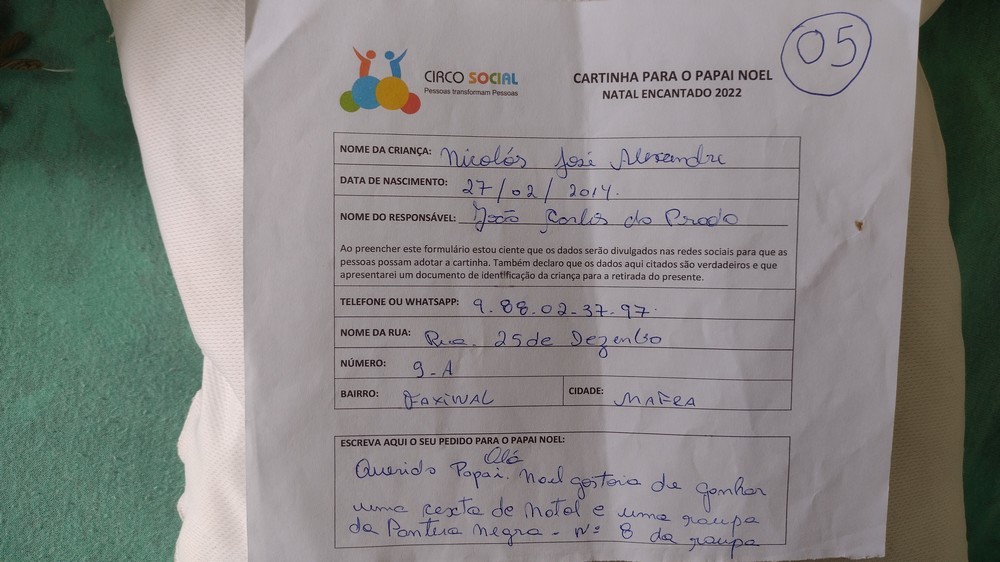 05
CIRCO SOCIAL
Pessoas transformam Pessoas
CARTINHA PARA O PAPAI NOEL
NATAL ENCANTADO 2022
NOME DA CRIANÇA: Nicolós José Alexandre
DATA DE NASCIMENTO: 27/02/2014.
NOME DO RESPONSÁVEL: João Carlos do Prado
Ao preencher este formulário estou ciente que os dados serão divulgados nas redes sociais para que as
pessoas possam adotar a cartinha. Também declaro que os dados aqui citados são verdadeiros e que
apresentarei um documento de identificação da criança para a retirada do presente.
TELEFONE OU WHATSAPP: 9.88.02-37-97.
NOME DA RUA: Rua. 25 de Dezenbro
NÚMERO: 9-A
BAIRRO: FAXINAL CIDADE: MAFRA
ESCREVA AQUI O SEU PEDIDO PARA O PAPAI NOEL:
Olá
Querido Papai. Noel gostoria de ganhar
uma cexta de Natal e uma roupa
da Pantera negra - Nº 8 da roupa